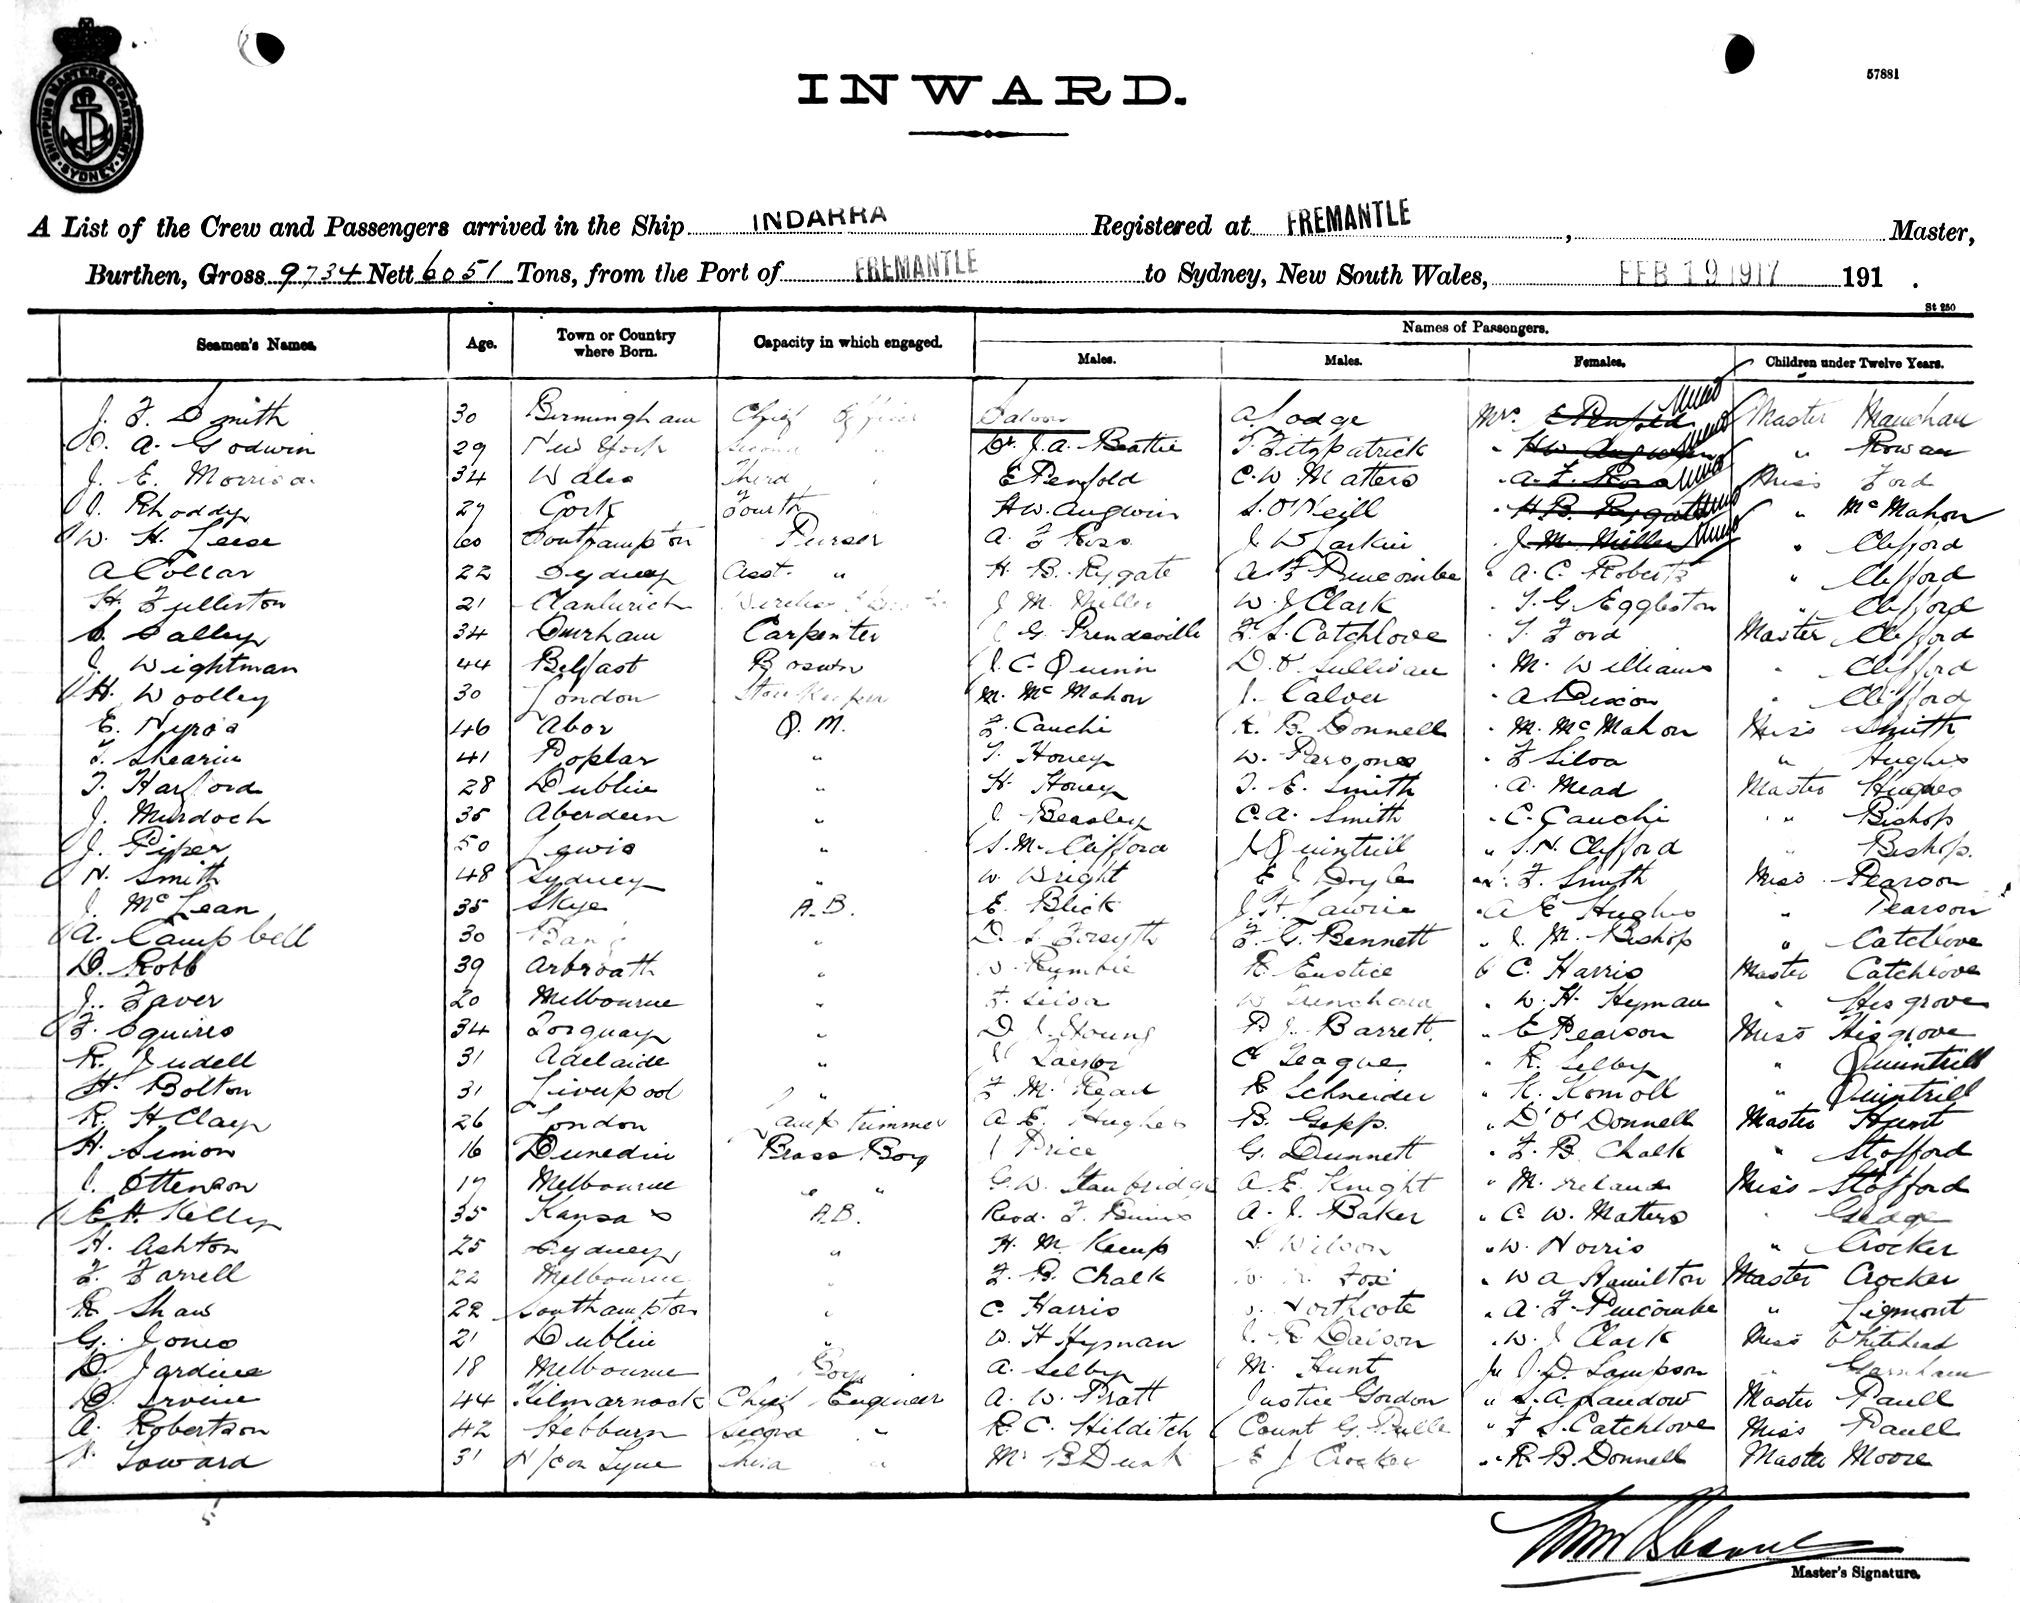 SHIPPING MASTERS DEPARTMENT SYDNEY
57881
INWARD.
A List of the Crew and Passengers arrived in the Ship INDARRA Registered at FREMANTLE , Master,
Burthen, Gross 9734 Nett 6051 Tons, from the Port of FREMANTLE to Sydney, New South Wales, FEB 19 1917 191 .
St 250
Seamen's Names. Age. Town or Country where Born. Capacity in which engaged. Names of Passengers.
Males. Males. Females. Children under Twelve Years.
J. F. Smith 30 Birmingham Chief Officer Saloon A Lodge Mrs E Penfold Master Mauchan
A. Godwin 29 New York Second " Dr. J. A. Beattie T. Fitzpatrick " H W Angwin " Rowan
J. E. Morrison 34 Wales Third " E Penfold C. W. Matters " A. F. Ross Miss Ford
Rhoddy 29 Cork Fourth " H W. Angwin S. O'Neill " H. B. Rygate " McMahon
W. H. Leese 60 Southampton Purser A. F Ross J W Larkin " J. M. Miller " Clifford
A Collar 22 Sydney Asst. " H. B. Rygate A F Puncombe " A. C. Roberts " Clifford
H. Fullerton 21 J M. Miller W. J Clark " T. G. Eggleston " Clifford
S. Salley 34 Durham Carpenter J G. Prendeville F. S. Catchlove " T. Ford Master Clifford
J. Wightman 44 Belfast Boswn J. C. Quinn D. O'Sullivan " M. Williams " Clifford
H. Woolley 30 London Storekeeper M. McMahon J. Calver " A Dixon " Clifford
E. 46 Abor Q. M. F. Cauchi R. B. Donnell " M. McMahon Miss Smith
T. Shearin 41 Poplar " T. Honey W. Parsons " F Silva " Hughes
T. Harford 28 Dublin " H. Honey T. E. Smith " A. Mead Master Hughes
J. Murdoch 35 Aberdeen " J. Beasley C. A. Smith " C. Cauchi " " Bishop
J. Piper 50 Lewis " S. M. Clifford J Quintrill " S. N. Clifford " Bishop.
N. Smith 48 Sydney " W. Wright E J Doyle " F. Smith Miss Pearson
J. McLean 35 Skye A. B. E. Blick J. H. Lawrie " A E Hughes " Pearson
A. Campbell 30 " D. S. Forsyth F. G. Bennett " J. M. Bishop " Catchlove
D. Robb 39 Arbroath " W. Rumbie R. Eustice " C. Harris Master Catchlove
J. Faver 20 Melbourne " F. Silva W Trenchard " W. H. Hyman " Hisgrove
F. Squires 34 Torquay " D. J. Young P. J. Barrett. " E Pearson Miss Hisgrove
R. Judell 31 Adelaide " C Teague " R. Selby " Quintrill
H. Bolton 31 Liverpool " F M. Read R Schneider " K. Komoll " Quintrill
R. H Clay 26 London Lamp trimmer A. E. Hughes B. Gepp. " D' O'Donnell Master Hunt
H. Simon 16 Dunedin Brass Boy J Price G. Dunnett " F. B. Chalk " Stofford
J. Ottenson 17 Melbourne " " G. W. Stanbridge A. E. Knight " M. Ireland Miss Stofford
E. H. Kelly 35 Kansas A.B. Revd. F. A. J. Baker " C. W. Matters " Gedge
H. Ashton 25 Sydney " H. M. Kemp Wilson " W. Norris " Crocker
F. Farrell 22 Melbourne " F. B. Chalk Fox " W A Hamilton Master Crocker
R. Shaw 22 Southampton " C. Harris Northcote " A. F. Puncombe " Ligmont
G. Jones 21 Dublin " W. H Hyman J. R Davison " W. J Clark Miss Whitehead
D. Jardine 18 Melbourne Boy A. Selby M. Hunt J. D. Sampson " Garnham
D. Irvine 44 Kilmarnock Chief Engineer A. W. Pratt Justice Gordon " S. A. Landow Master Paull
A. Robertson 42 Hebburn Second " R. C. Hilditch Count G. Pulle " F S. Catchlove Miss Paull
Toward 31 N/con Tyne Third " Mr B Dunk E J Crocker " R B. Donnell Master Moore
Master's Signature.